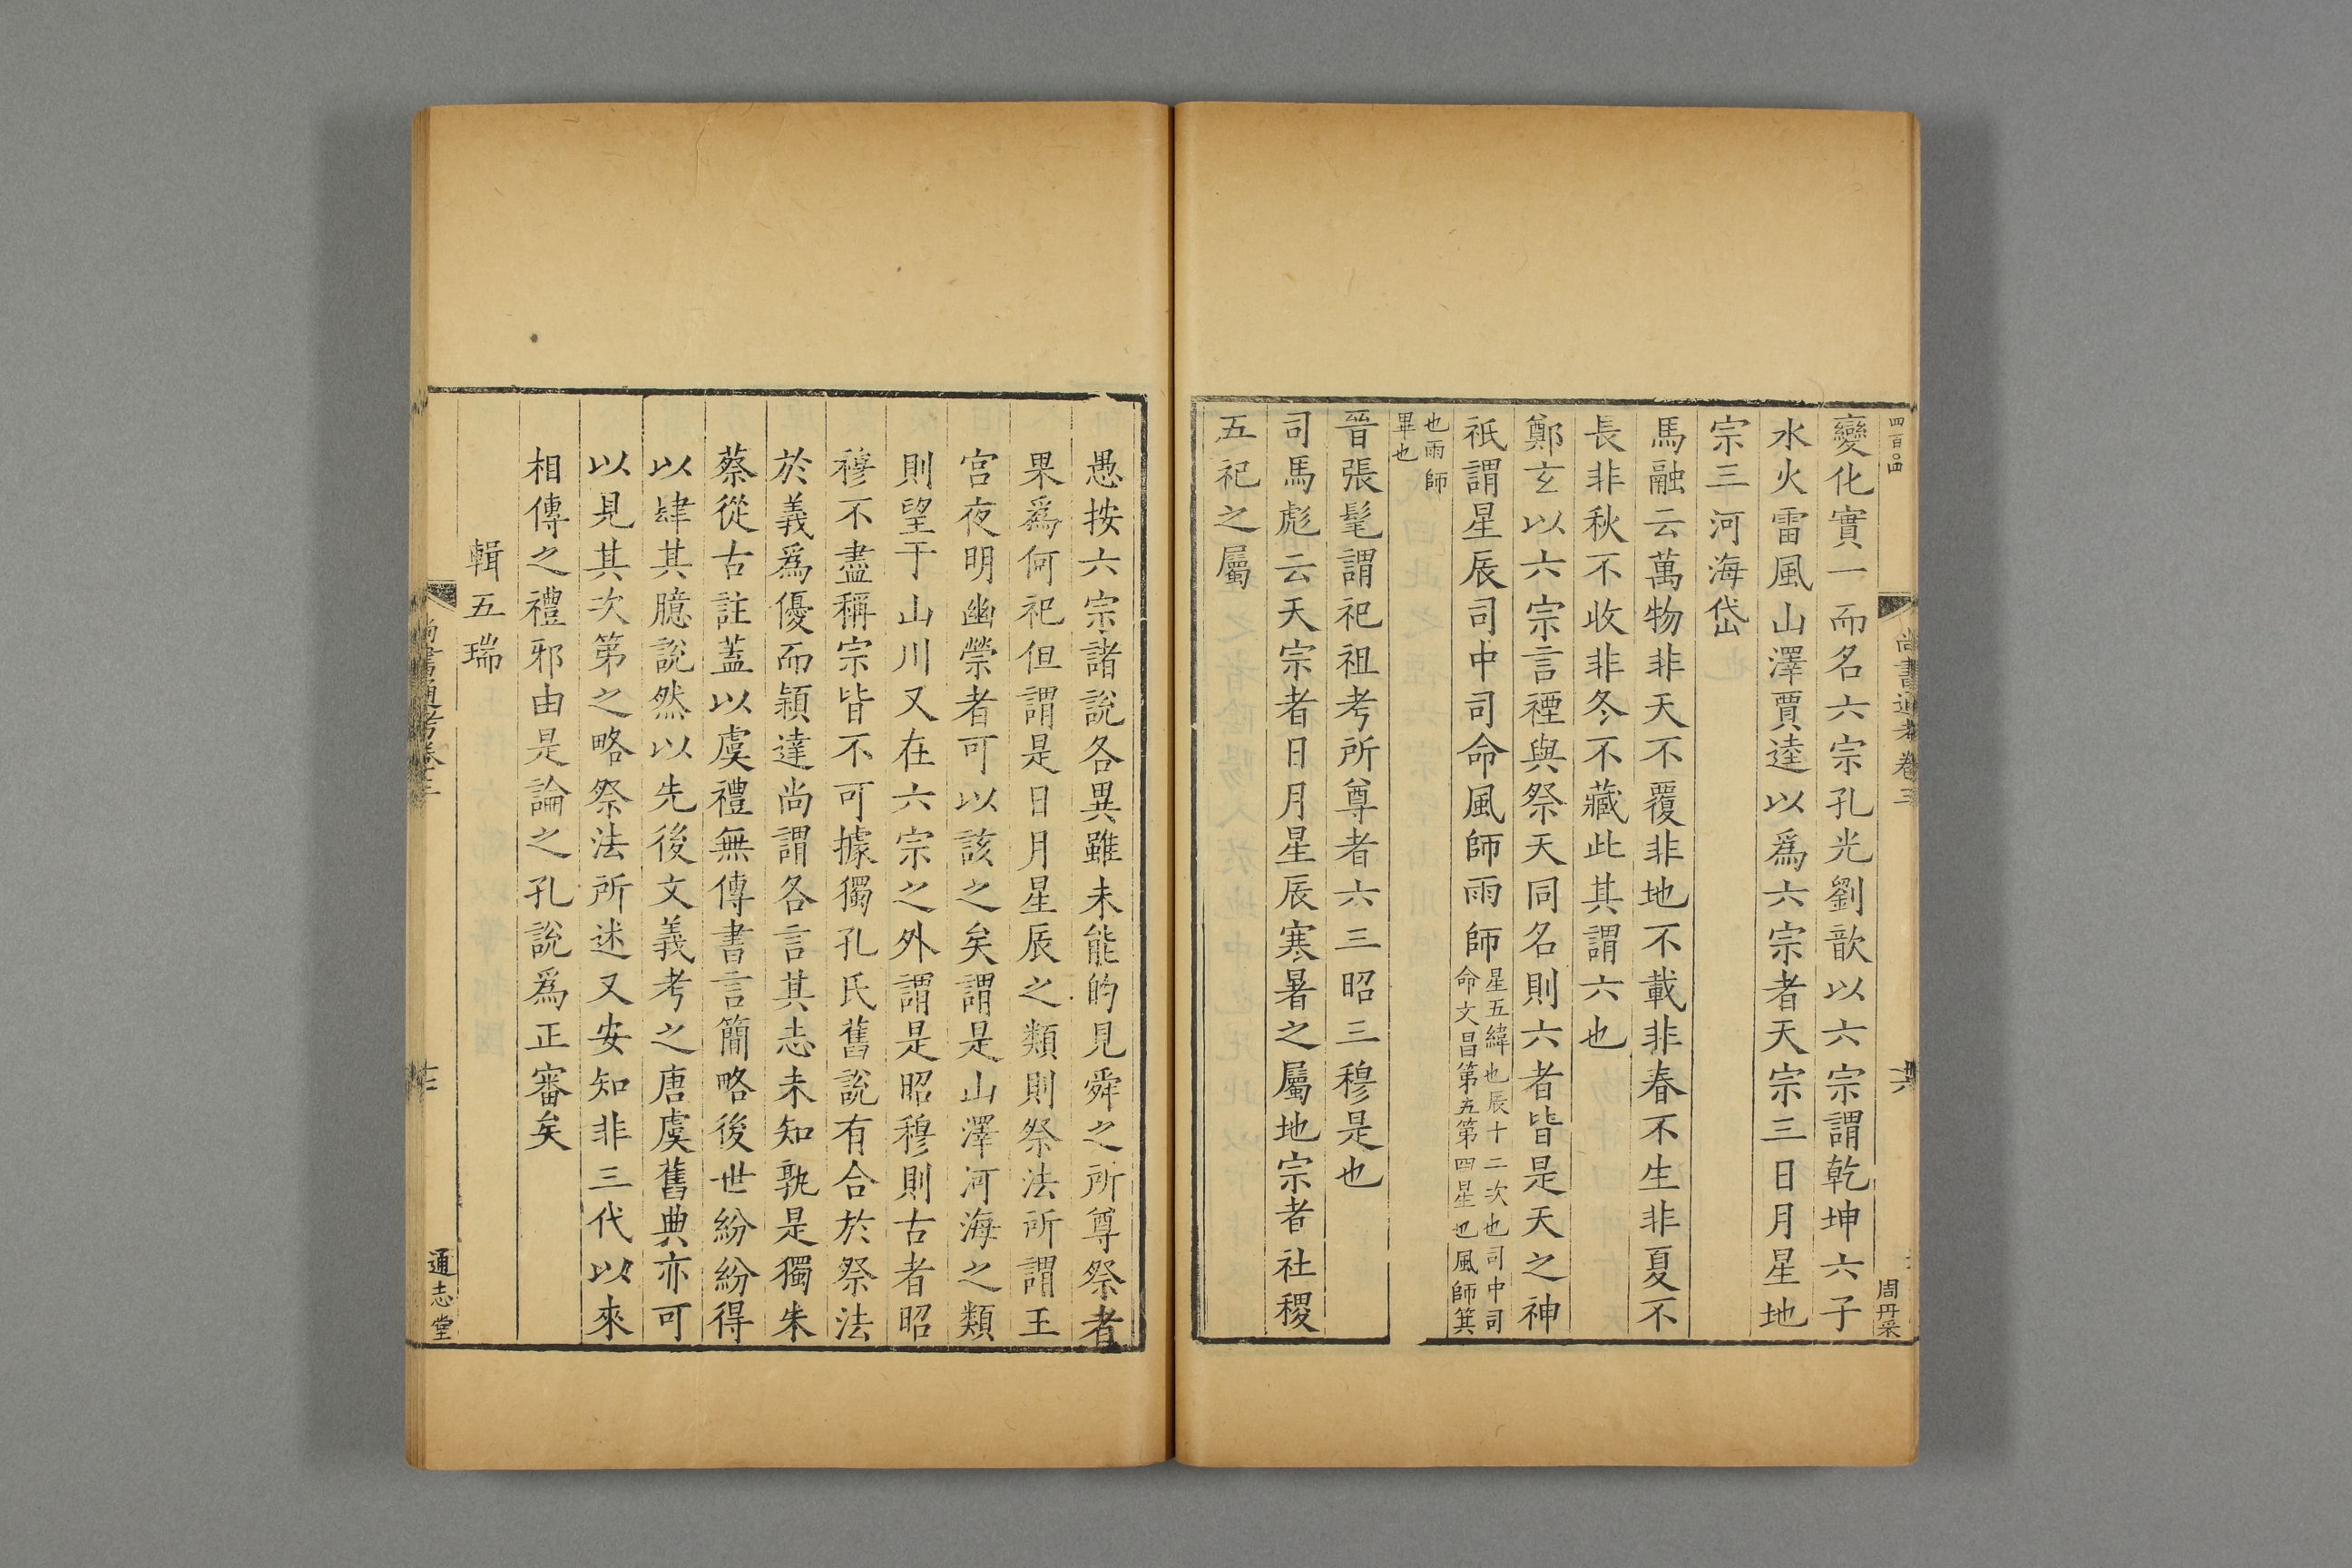 四百○四
尚書通考卷三
周丹采
變化實一而名六宗孔光劉歆以六宗謂乾坤六子
水火雷風山澤賈逵以爲六宗者天宗三日月星地
宗三河海岱
馬融云萬物非天不覆非地不載非春不生非夏不
長非秋不收非冬不藏此其謂六也
鄭玄以六宗言禋與祭天同名則六者皆是天之神
祇謂星辰司中司命風師雨師星五緯也辰十二次也司中司
命文昌第五第四星也風師箕
也雨師
畢也
晉張髦謂祀祖考所尊者六三昭三穆是也
司馬彪云天宗者日月星辰寒暑之屬地宗者社稷
五祀之屬
愚按六宗諸說各異雖未能的見舜之所尊祭者
果爲何祀但謂是日月星辰之類則祭法所謂王
宮夜明幽禜者可以該之矣謂是山澤河海之類
則望于山川又在六宗之外謂是昭穆則古者昭
穆不盡稱宗皆不可據獨孔氏舊說有合於祭法
於義爲優而穎達尚謂各言其志未知孰是獨朱
蔡從古註蓋以虞禮無傳書言簡略後世紛紛得
以肆其臆說然以先後文義考之唐虞舊典亦可
以見其次第之略祭法所述又安知非三代以來
相傳之禮邪由是論之孔說爲正審矣
輯五瑞
尚書通考卷三
通志堂